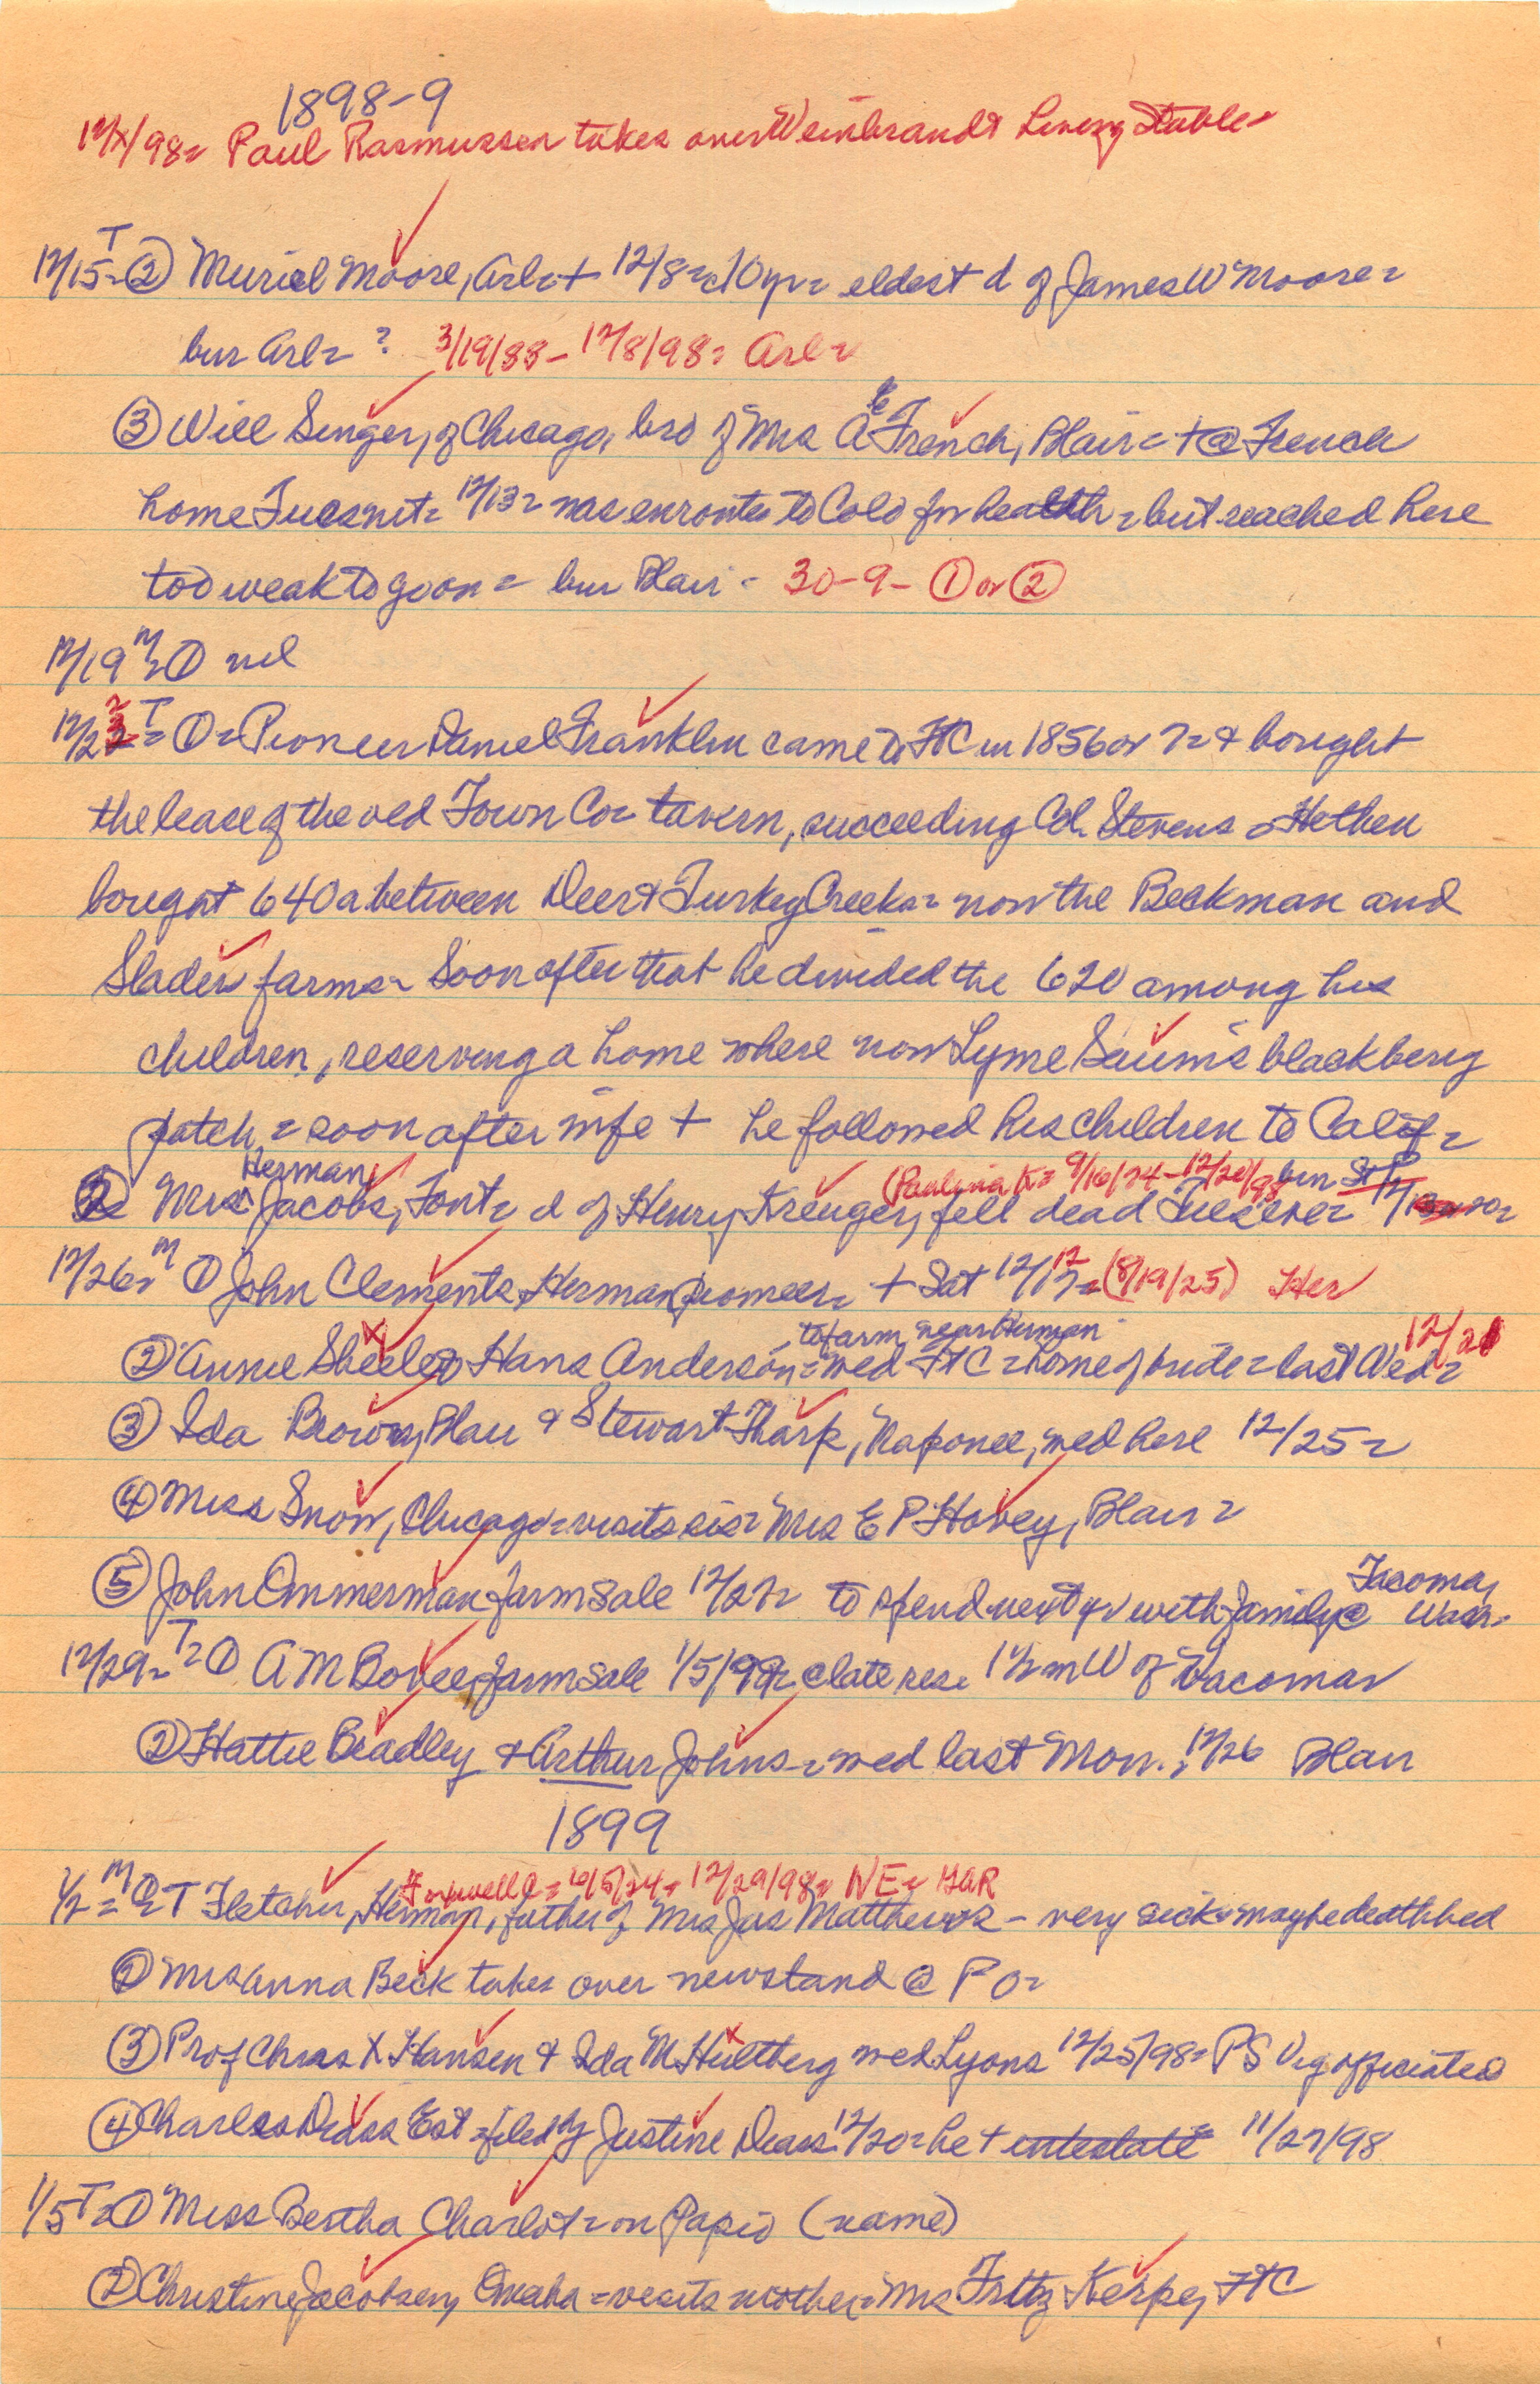 1898-9
12/1/98= Paul Rasmussen takes over Weinbrandt Livery Stable=
12/15 T = ② Muriel Moore, Arl= + 12/8= 10yr= eldest d of James W Moore=
bur Arl= ? 3/19/88 - 12/8/98= Arl=
③ Will Singer, of Chicago, bro of Mrs A E French, Blair = + @ French
home Tues nit= 12/13= was enroute to Colo for health = but reached here
too weak to go on = bur Blair - 30-9- ① or ②
12/19 M = ① nil
12/22 T = ① = Pioneer Daniel Franklin came to FTC in 1856 or 7= & bought
the lease of the old Town Co= tavern, succeeding Col. Stevens = He then
bought 640a between Deer & Turkey Creeks= now the Beckman and
Slader farms= Soon after that he divided the 620 among his
children, reserving a home where now Lyme Saum's blackberry
patch = soon after wife + he followed his children to Calif=
② Mrs Herman Jacobs, Font= d of Henry Kreuger, fell dead Tues eve= 12/20= (Paulina K= 9/16/74-12/20/98 bur St P
12/26= M ① John Clements, Herman pioneer= + Sat 12/17= (8/19/25) Her
② Annie Sheeler & Hans Anderson = wed FTC = home of bride = last Wed= 12/21 to farm near Herman
③ Ida Brown, Blair & Stewart Tharp, Naponee, wed here 12/25=
④ Miss Snow, Chicago = visits sis= Mrs E P Hovey, Blair=
⑤ John Ommerman farm sale 12/27= to spend next yr with family @ Tacoma, Wash=
12/29= T = ① A M Bovee, farm sale 1/5/99= @ late res. 1½ m W of Vacoma=
② Hattie Bradley & Arthur Johns = wed last Mon., 12/26 Blair
1899
1/2 M = ① E T Fletcher, Herman, father of Mrs Jas Matthews - very sick = maybe deathbed
= 6/5/24= 12/29/98= NE= GAR
② Mrs Anna Beck takes over newstand @ P O=
③ Prof Chras X Hansen & Ida M. Hultberg wed Lyons 12/25/98= P S Vig officiated
④ Charles Dras Est = filed by Justine Dras 12/20= he + intestate 11/27/98
1/5 T = ① Miss Bertha Charlot = on Papio (name)
② Christine Jacobsen, Omaha = visits mother= Mrs Fritz Kerpe, FTC